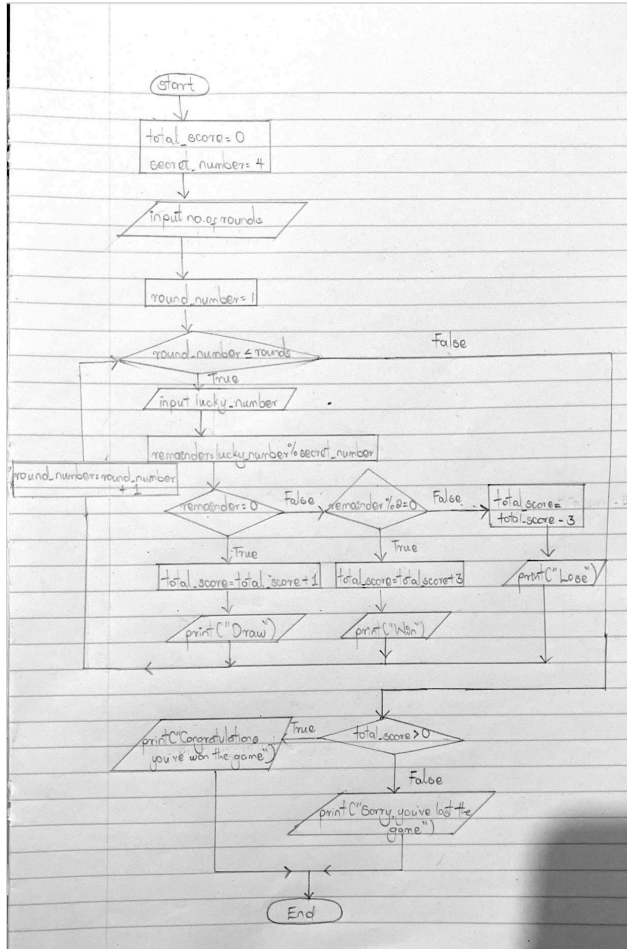 start
total_score=0
secret_number=4
input no.of rounds
round_number=1
round_number≤rounds
False
True
input lucky_number
remainder=lucky_number%secret_number
round_number=round_number
+1
remainder=0
False
remainder%2=0
False
total_score=
total_score-3
True
True
total_score=total_score+1
total_score=total_score+3
print("Lose")
print("Draw")
print("Win")
total_score>0
True
print("Congratulations
you've won the game")
False
print("Sorry, you've lost the
game")
End